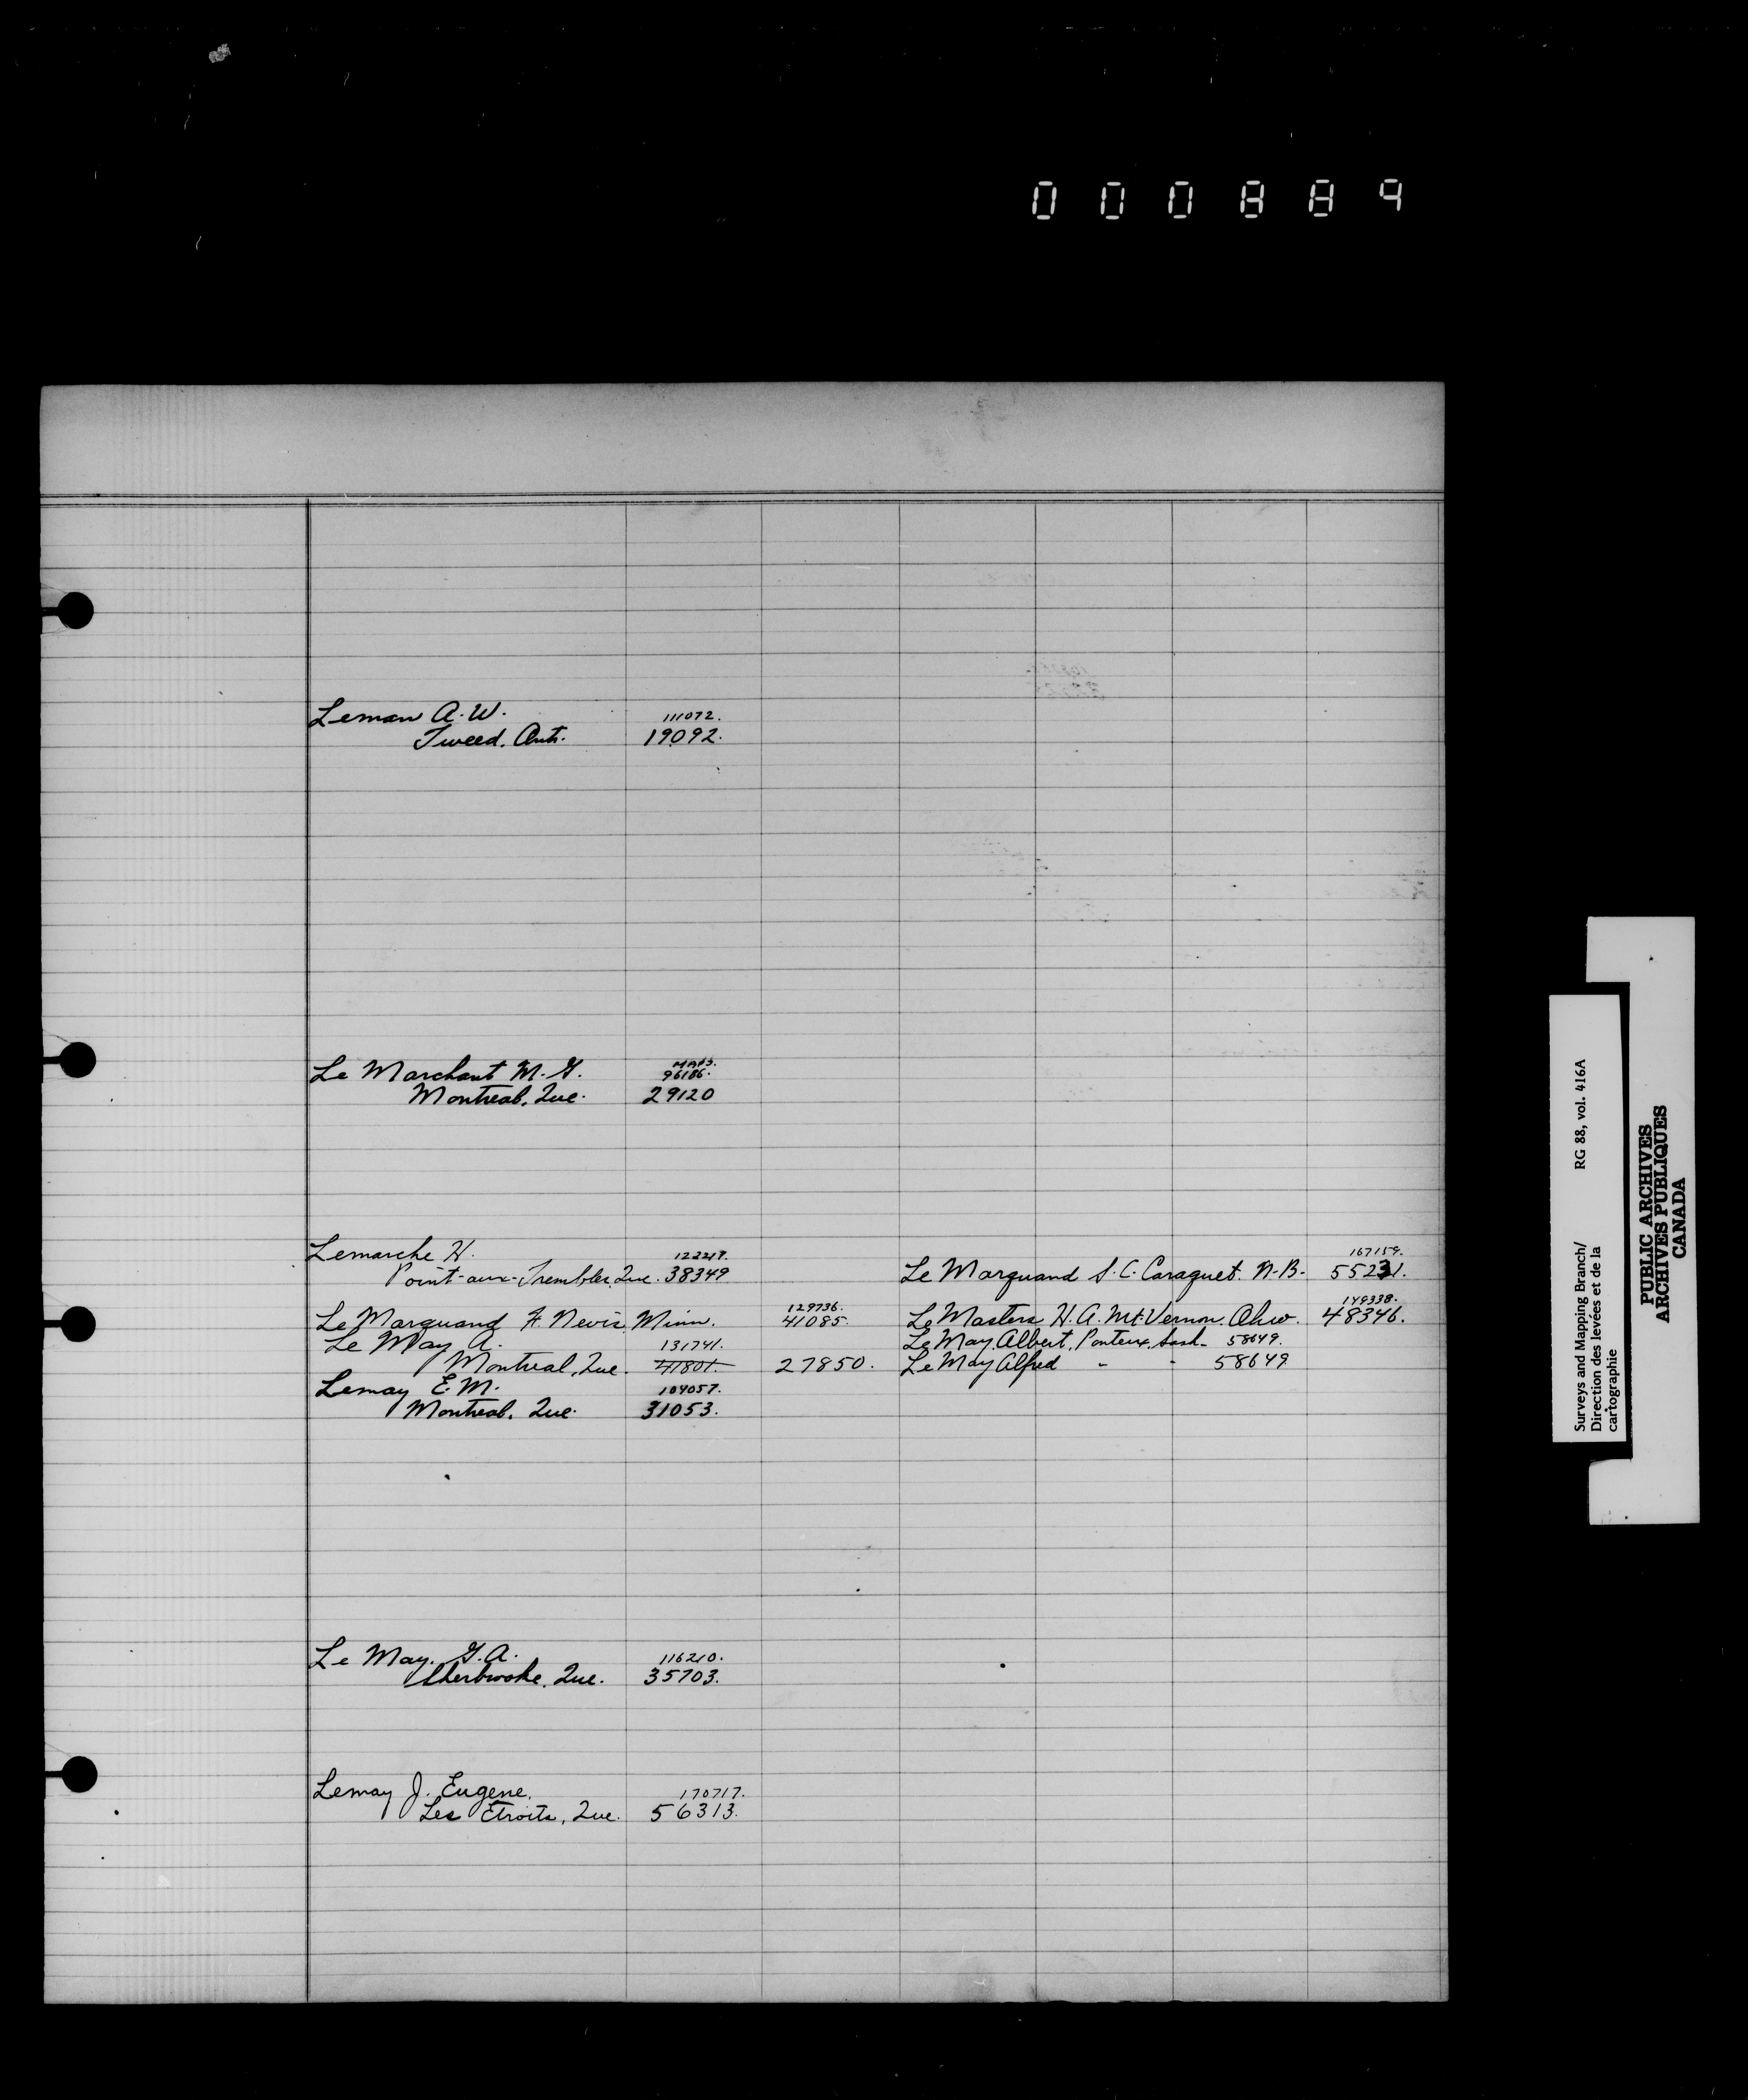 000884
Leman A. W. 111072.
Tweed. Ont. 19092.
Le Marchant M. G. MAPS. 96186.
Montreal, Que. 29120
Lemarche H. 122217.
Point-aux-Trembles, Que. 38349
Le Marquand S. C. Caraquet. N-B- 167159. 55231.
Le Marquand F. Nevis, Minn. 129736. 41085.
Le Masters H. A. Mt. Vernon. Ohio. 149338. 48346.
Le May A. 131741.
Montreal, Que. 41801. 27850.
Le May Albert, Ponteix, Sask- 58649.
Le May Alfred " " 58649
Lemay E. M. 104057.
Montreal. Que. 31053.
Le May. G. A. 116210.
Sherbrooke. Que. 35703.
Lemay J. Eugene. 170717.
Les Etroits, Que. 56313.
Surveys and Mapping Branch/ RG 88, vol. 416A
Direction des levées et de la
cartographie
PUBLIC ARCHIVES
ARCHIVES PUBLIQUES
CANADA